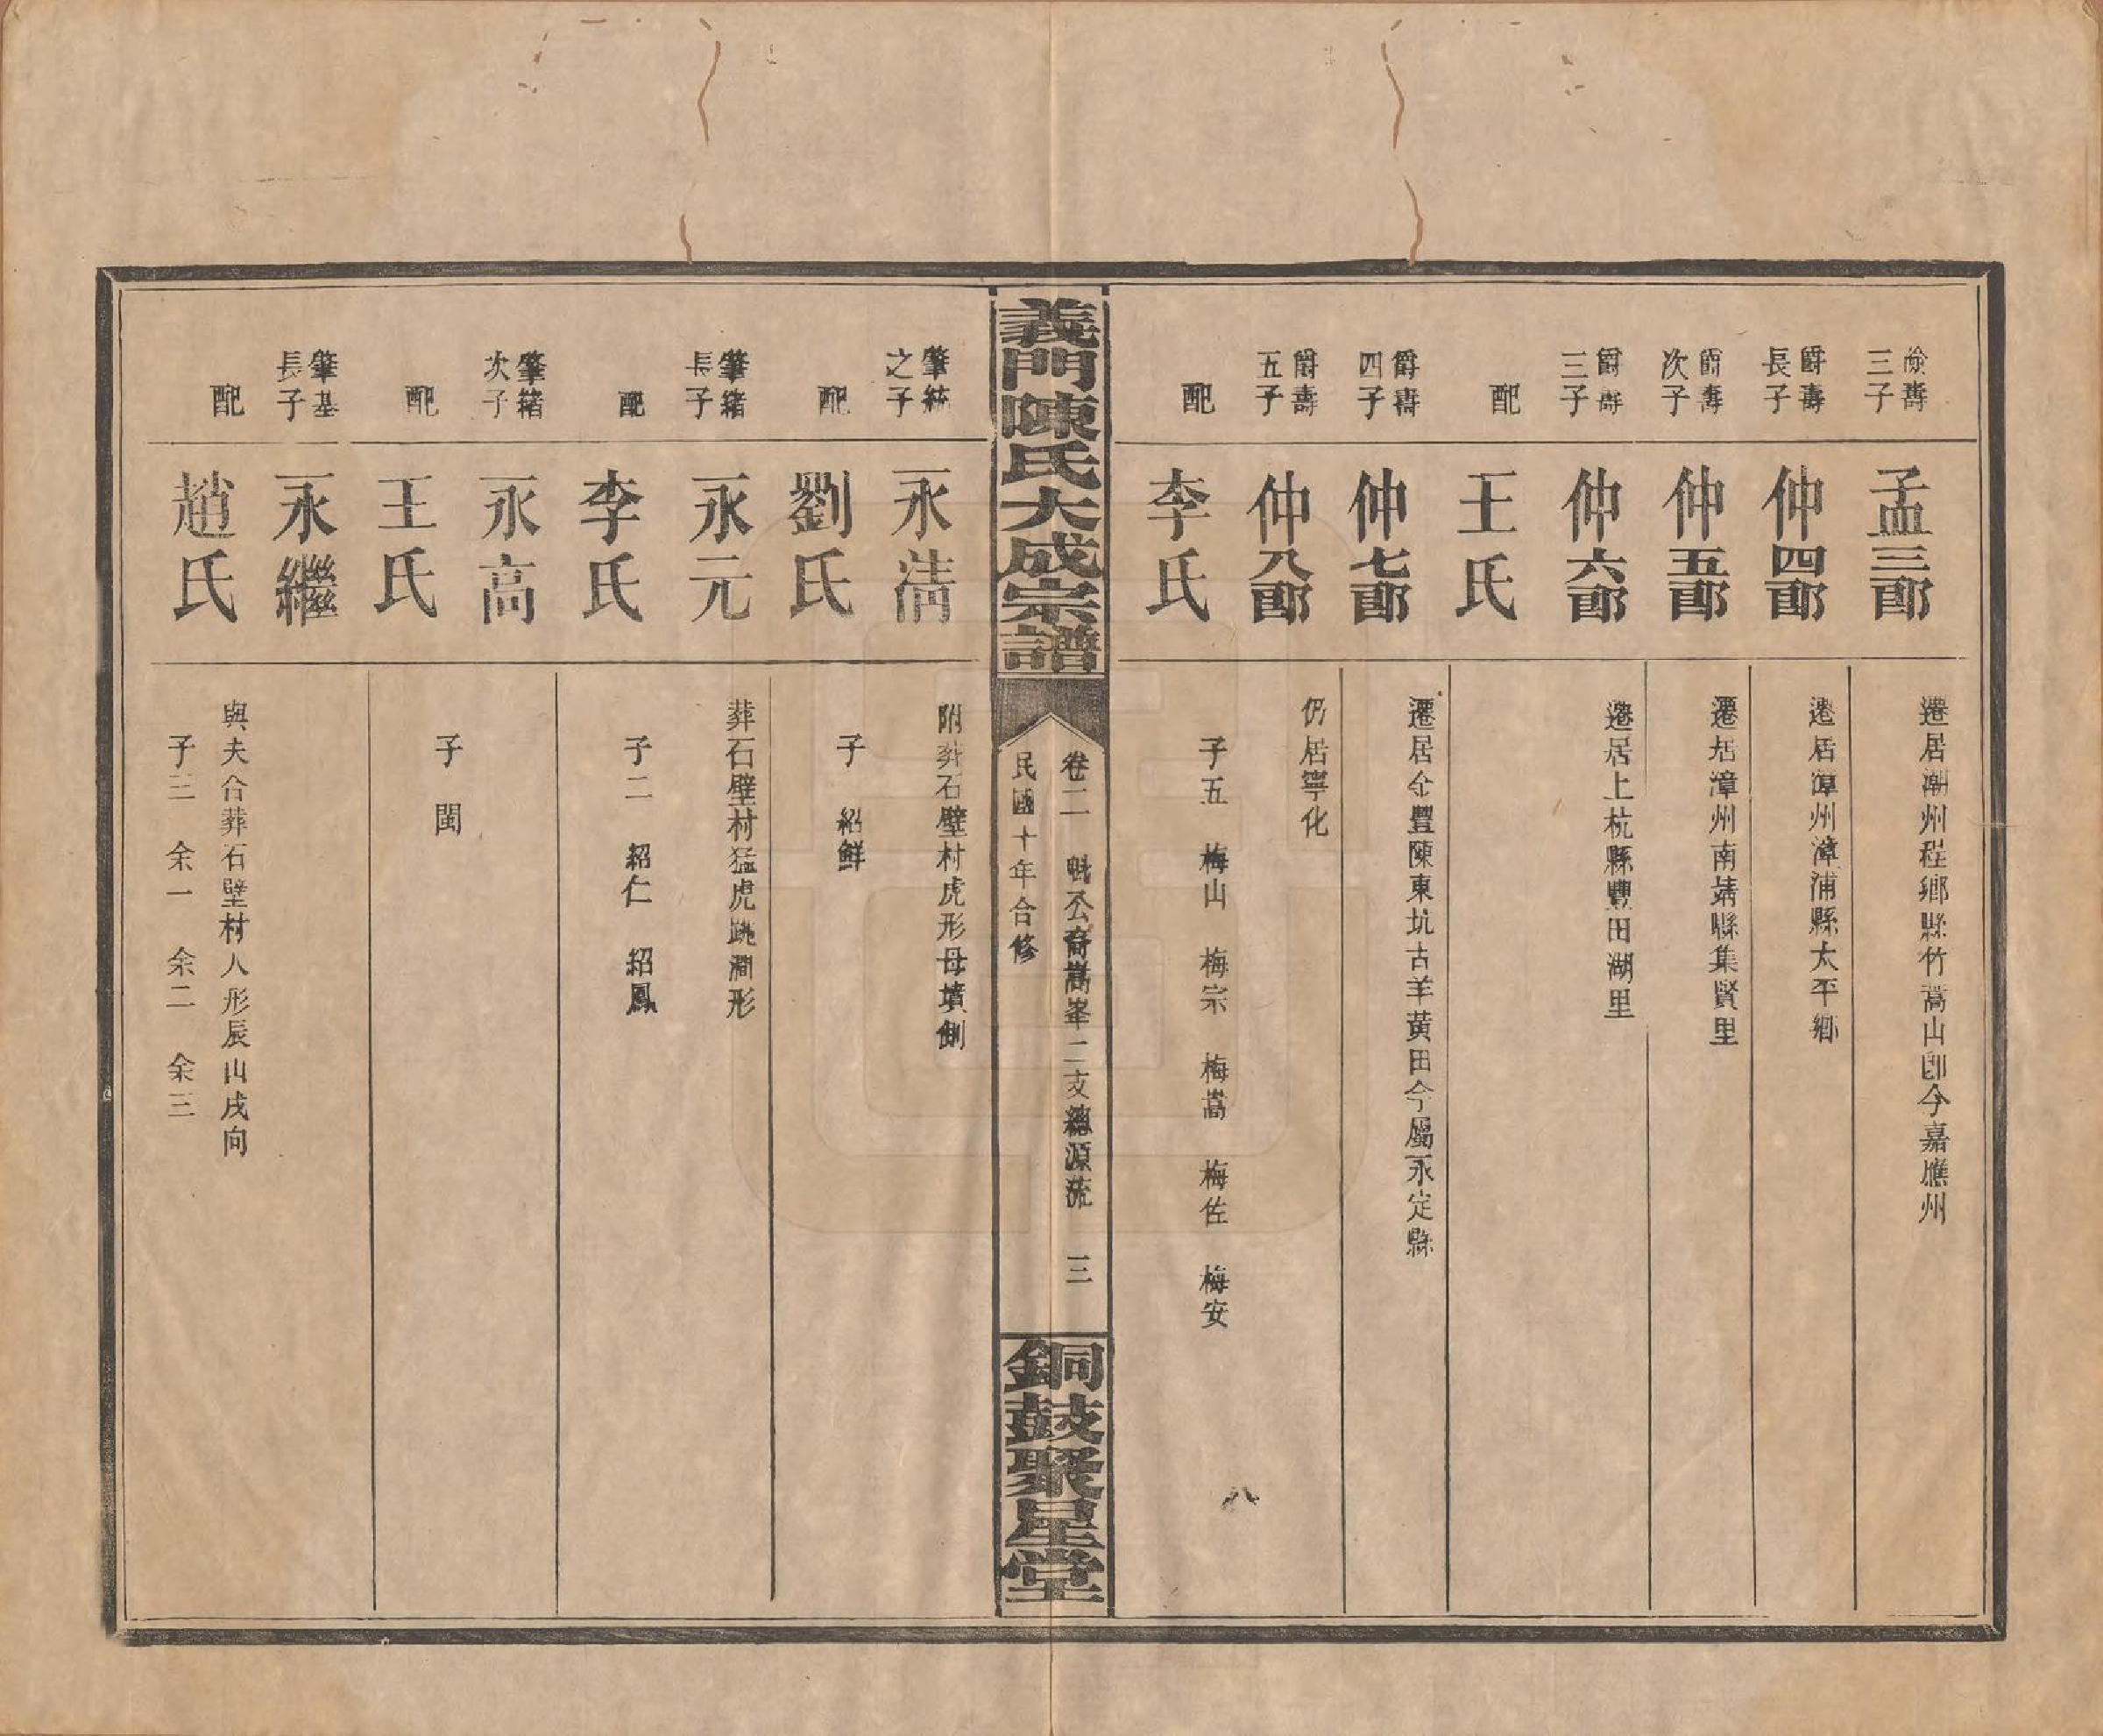 儉壽三子
孟三郎
遷居潮州程鄉縣竹蒿山即今嘉應州
爵壽長子
仲四郎
遷居漳州漳浦縣太平鄉
爵壽次子
仲五郎
遷居漳州南靖縣集賢里
爵壽三子
仲六郎
遷居上杭縣豐田湖里
配
王氏
爵壽四子
仲七郎
遷居金豐陳東坑古羊黃田今屬永定縣
爵壽五子
仲八郎
仍居寧化
配
李氏
子五 梅山 梅宗 梅嵩 梅佐 梅安
八
義門陳氏大成宗譜
卷二 魁公裔嵩峯二支總源流 三
民國十年合修
銅鼓聚星堂
肇統之子
永清
附葬石壁村虎形母墳側
配
劉氏
子 紹鮮
肇緒長子
永元
葬石壁村猛虎跳澗形
配
李氏
子二 紹仁 紹鳳
肇緒次子
永高
配
王氏
子 閩
肇基長子
永繼
配
趙氏
與夫合葬石壁村人形辰山戌向
子三 余一 余二 余三